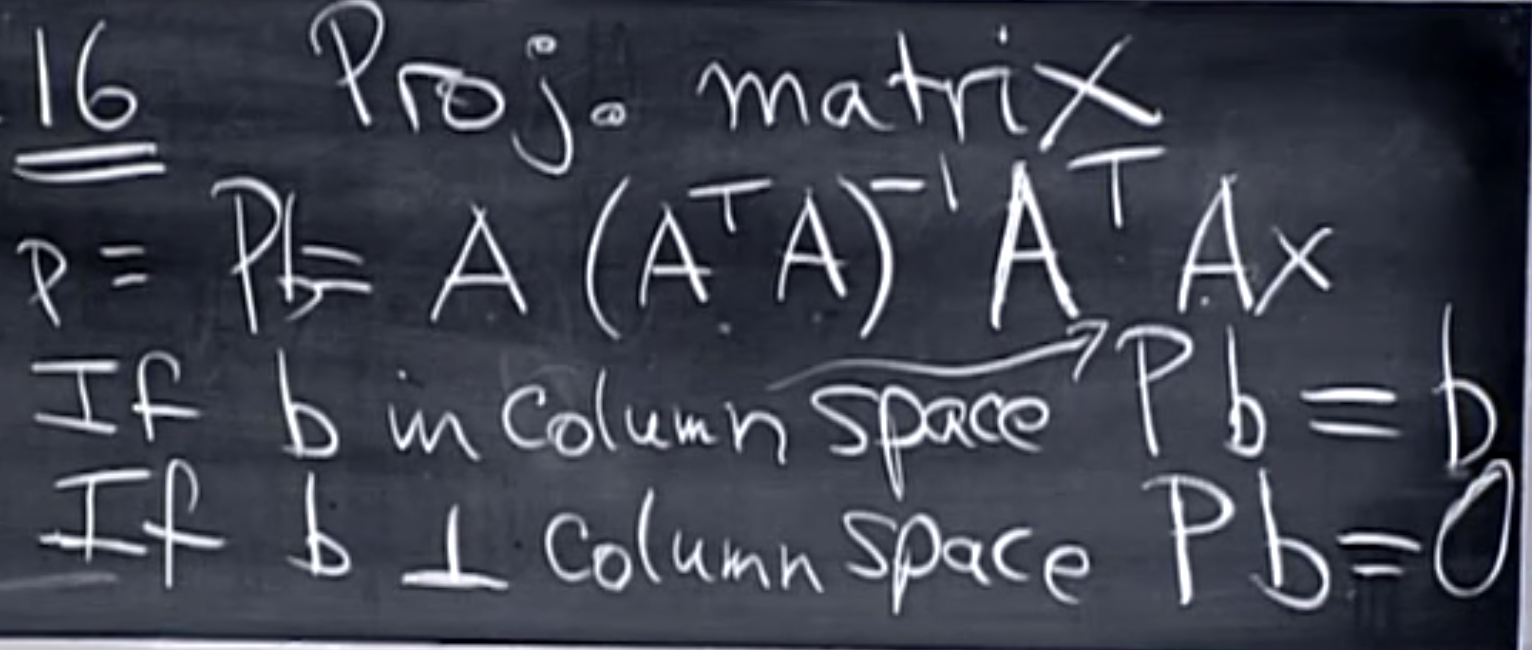 16 Proj. matrix
p = Pb = A (AᵀA)⁻¹ Aᵀ Ax
If b in column space → Pb = b
If b ⊥ column space Pb = 0